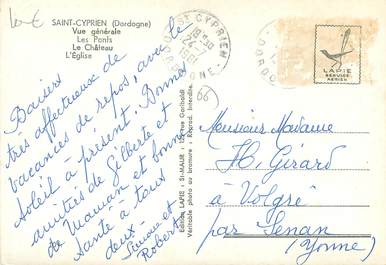 SAINT-CYPRIEN (Dordogne)
Vue générale
Les Ponts
Le Château
L'Église
Baisers
très affectueux de
vacances de repos, avec le
soleil à présent. Bonnes
amitiés de Gilberte et
de Maman et bonne
santé à tous
deux.
Simone et
Robert
ST CYPRIEN
DORDOGNE
Edition LAPIE - St-MAUR
Véritable photo au bromure - Reprod. Interdite.
LAPIE
SERVICE
AERIEN
66
Monsieur Madame
H. Girard
à Volgré
par Senan
(Yonne)